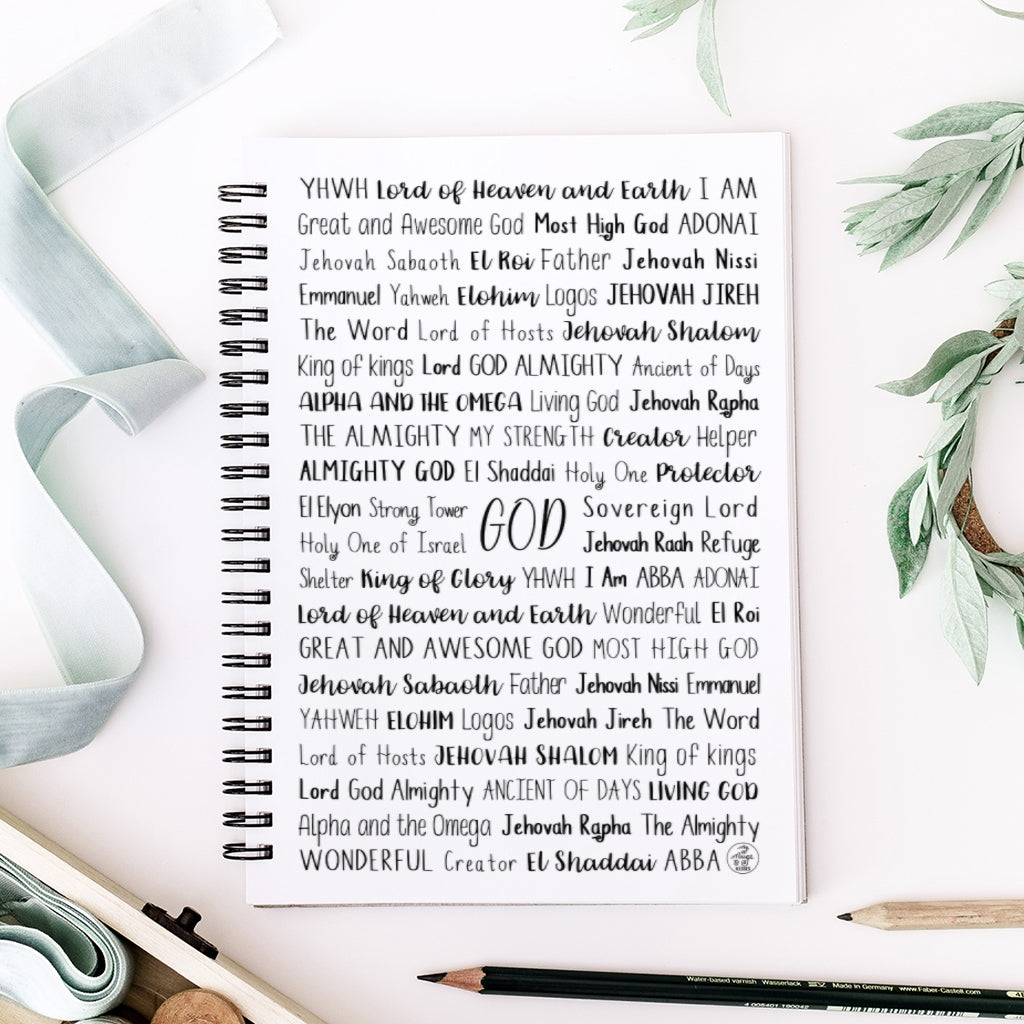 YHWH Lord of Heaven and Earth I AM
Great and Awesome God Most High God ADONAI
Jehovah Sabaoth El Roi Father Jehovah Nissi
Emmanuel Yahweh Elohim Logos JEHOVAH JIREH
The Word Lord of Hosts Jehovah Shalom
King of kings Lord GOD ALMIGHTY Ancient of Days
ALPHA AND THE OMEGA Living God Jehovah Rapha
THE ALMIGHTY MY STRENGTH Creator Helper
ALMIGHTY GOD El Shaddai Holy One Protector
El Elyon Strong Tower
Holy One of Israel
GOD
Sovereign Lord
Jehovah Raah Refuge
Shelter King of Glory YHWH I Am ABBA ADONAI
Lord of Heaven and Earth Wonderful El Roi
GREAT AND AWESOME GOD MOST HIGH GOD
Jehovah Sabaoth Father Jehovah Nissi Emmanuel
YAHWEH ELOHIM Logos Jehovah Jireh The Word
Lord of Hosts JEHOVAH SHALOM King of kings
Lord God Almighty ANCIENT OF DAYS LIVING GOD
Alpha and the Omega Jehovah Rapha The Almighty
WONDERFUL Creator El Shaddai ABBA
Water-based varnish Wasserlack Made in Germany www.Faber-Castell.com
4 005401 190042